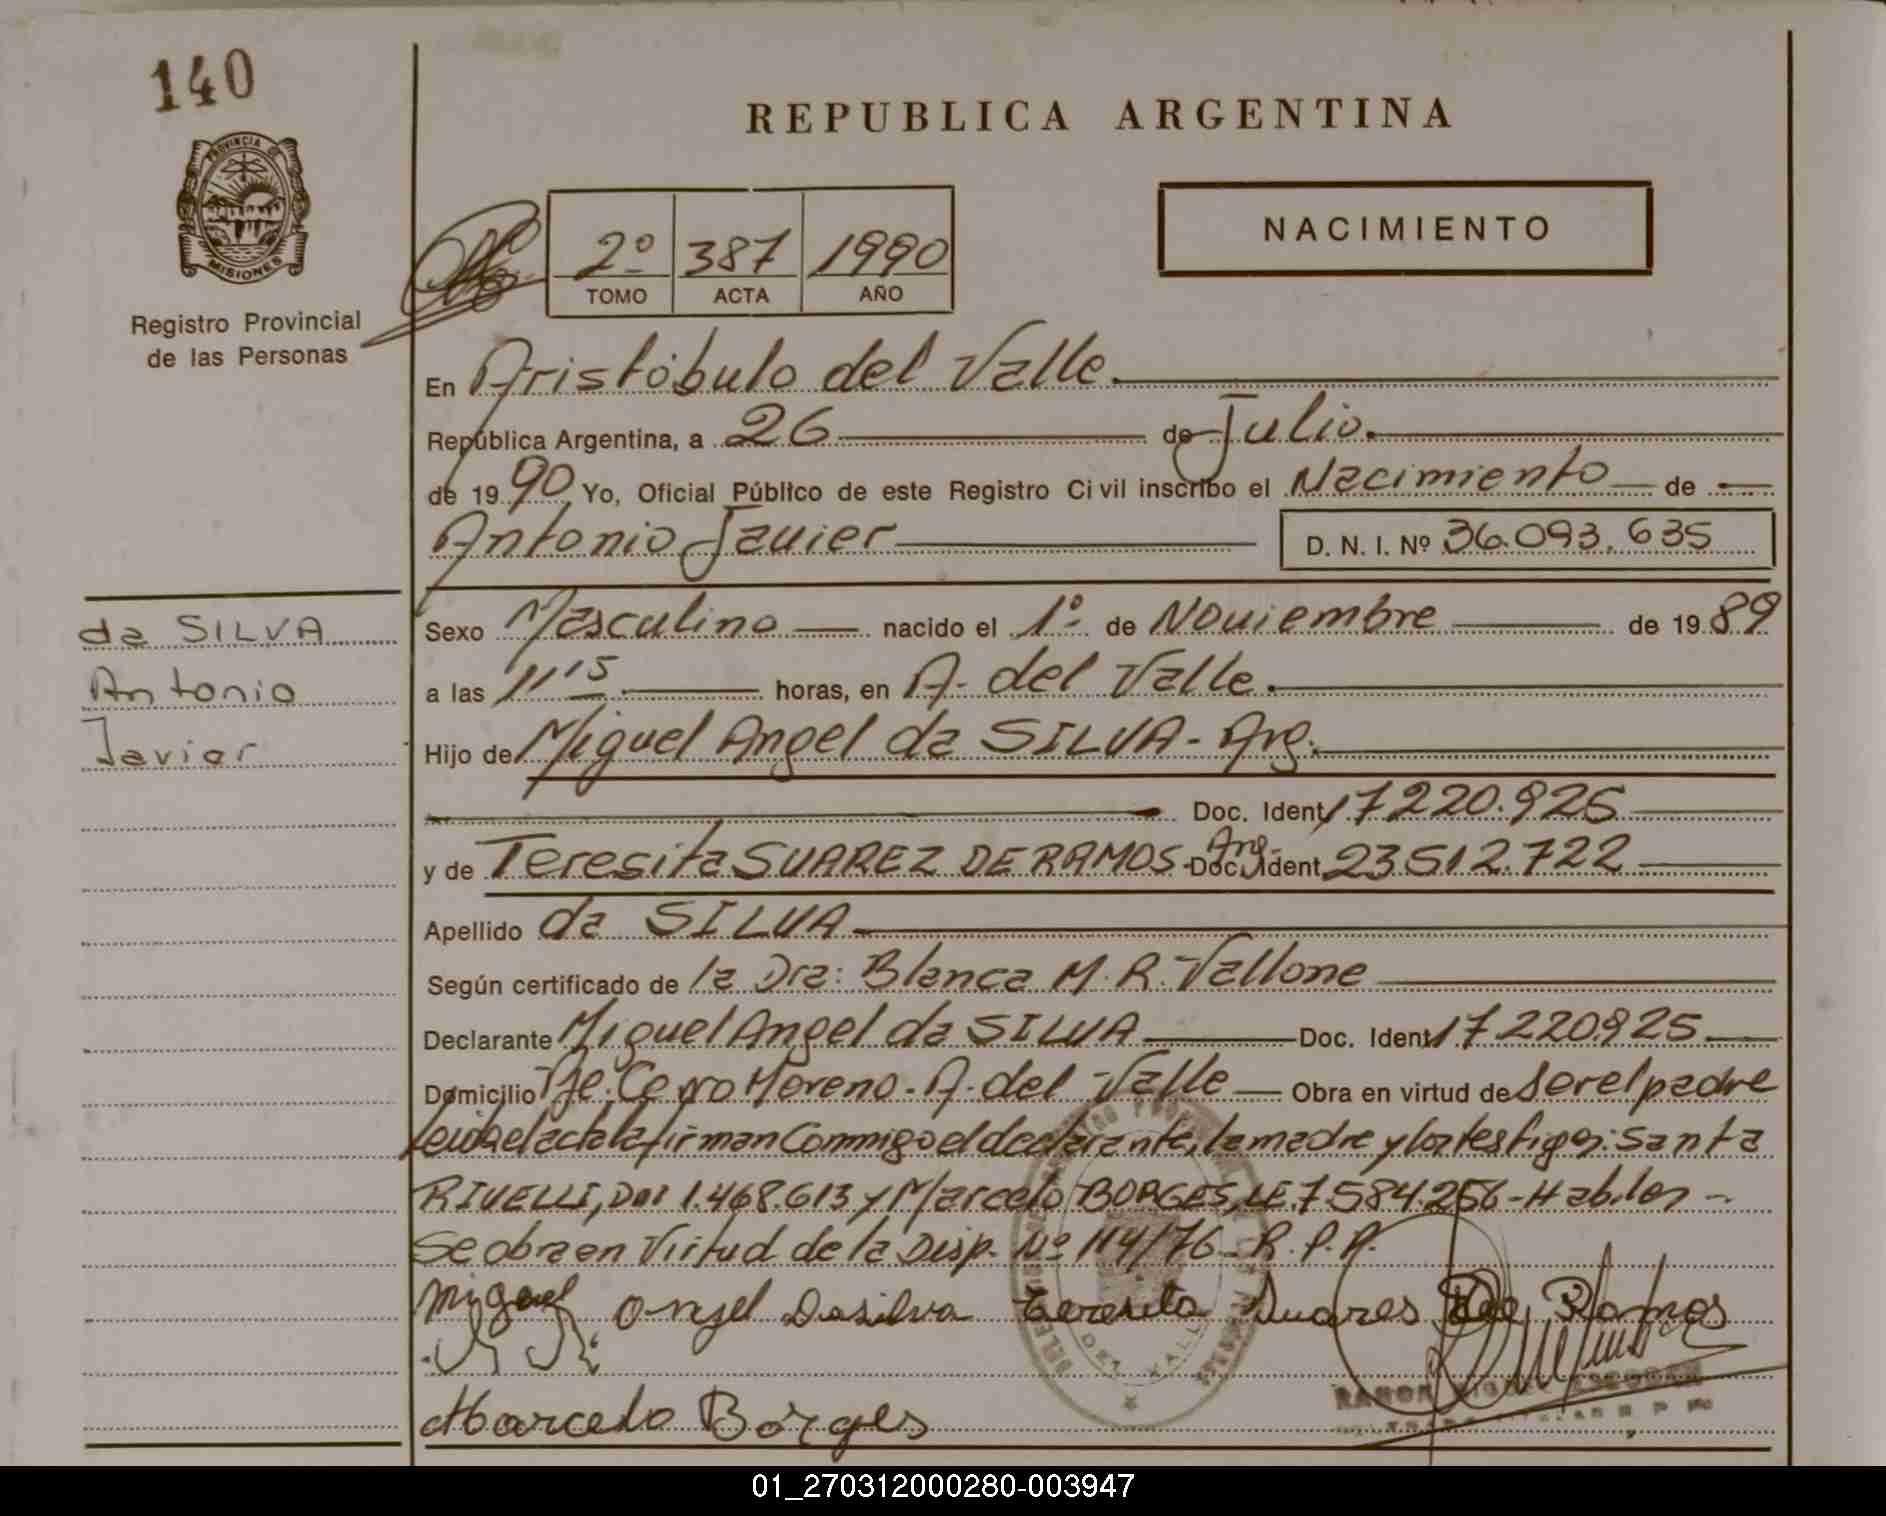 140
PROVINCIA DE
MISIONES
Registro Provincial
de las Personas
REPUBLICA ARGENTINA
2º 387 1990
TOMO ACTA AÑO
NACIMIENTO
En Aristóbulo del Valle.
República Argentina, a 26 de Julio.
de 1990 Yo, Oficial Público de este Registro Civil inscribo el Nacimiento de
Antonio Javier D. N. I. Nº 36.093.635
da SILVA
Antonio
Javier
Sexo Masculino nacido el 1º de Noviembre de 1989
a las 11 15 horas, en A. del Valle.
Hijo de Miguel Angel da SILVA - Arg.
Doc. Ident 17.220.925
y de Teresita SUAREZ DE RAMOS - Arg. Doc. Ident 23.512.722
Apellido da SILVA
Según certificado de la Dra: Blanca M. R. Vallone
Declarante Miguel Angel da SILVA Doc. Ident 17.220.925
Domicilio Pje. Cerro Moreno - A. del Valle Obra en virtud de ser el padre
Leida el acta la firman Conmigo el declarante, la madre y los testigos: Santa
RIVELLI, 1.468.613 y Marcelo BORGES, LE. 7.584.256 - Habiles -
Se obra en Virtud de la Disp. Nº 114/76 - R. P. P.
Miguel Angel Dasilva Teresita Suares De Ramos
Marcelo Borges
DEL VALLE
RAMON MIGUEL ESCOBAR
01_270312000280-003947